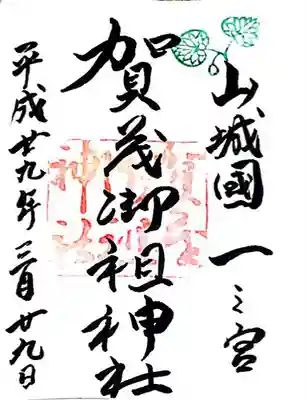 山城國一之宮
賀茂御祖神社
平成廿九年三月廿九日